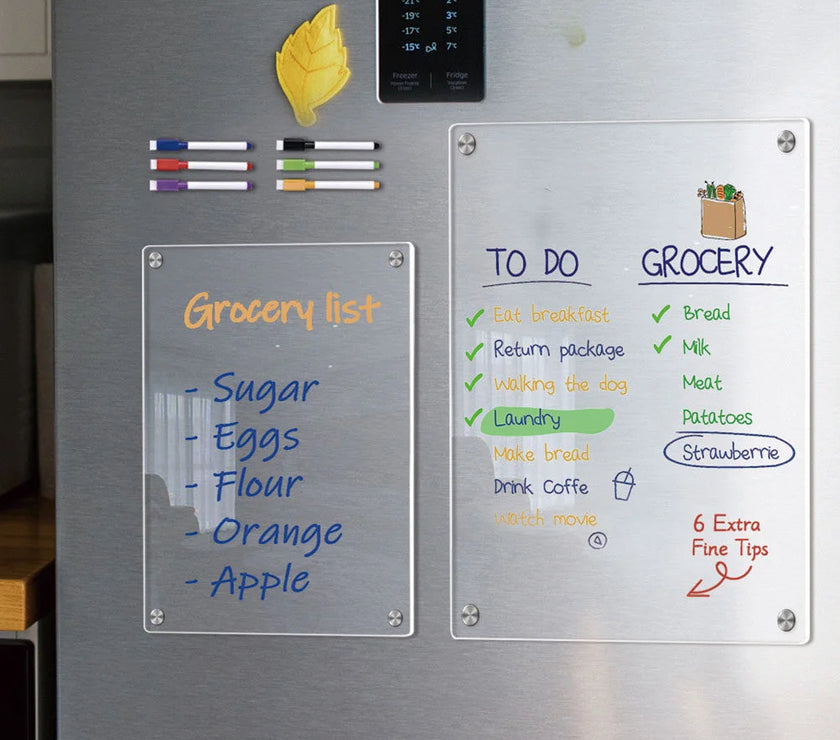 -21℃
-19℃ 3℃
-17℃ 5℃
-15℃ 7℃
Freezer Fridge
Grocery list
- Sugar
- Eggs
- Flour
- Orange
- Apple
TO DO
Eat breakfast
Return package
Walking the dog
Laundry
Make bread
Drink Coffe
Watch movie
GROCERY
Bread
Milk
Meat
Patatoes
Strawberrie
6 Extra
Fine Tips